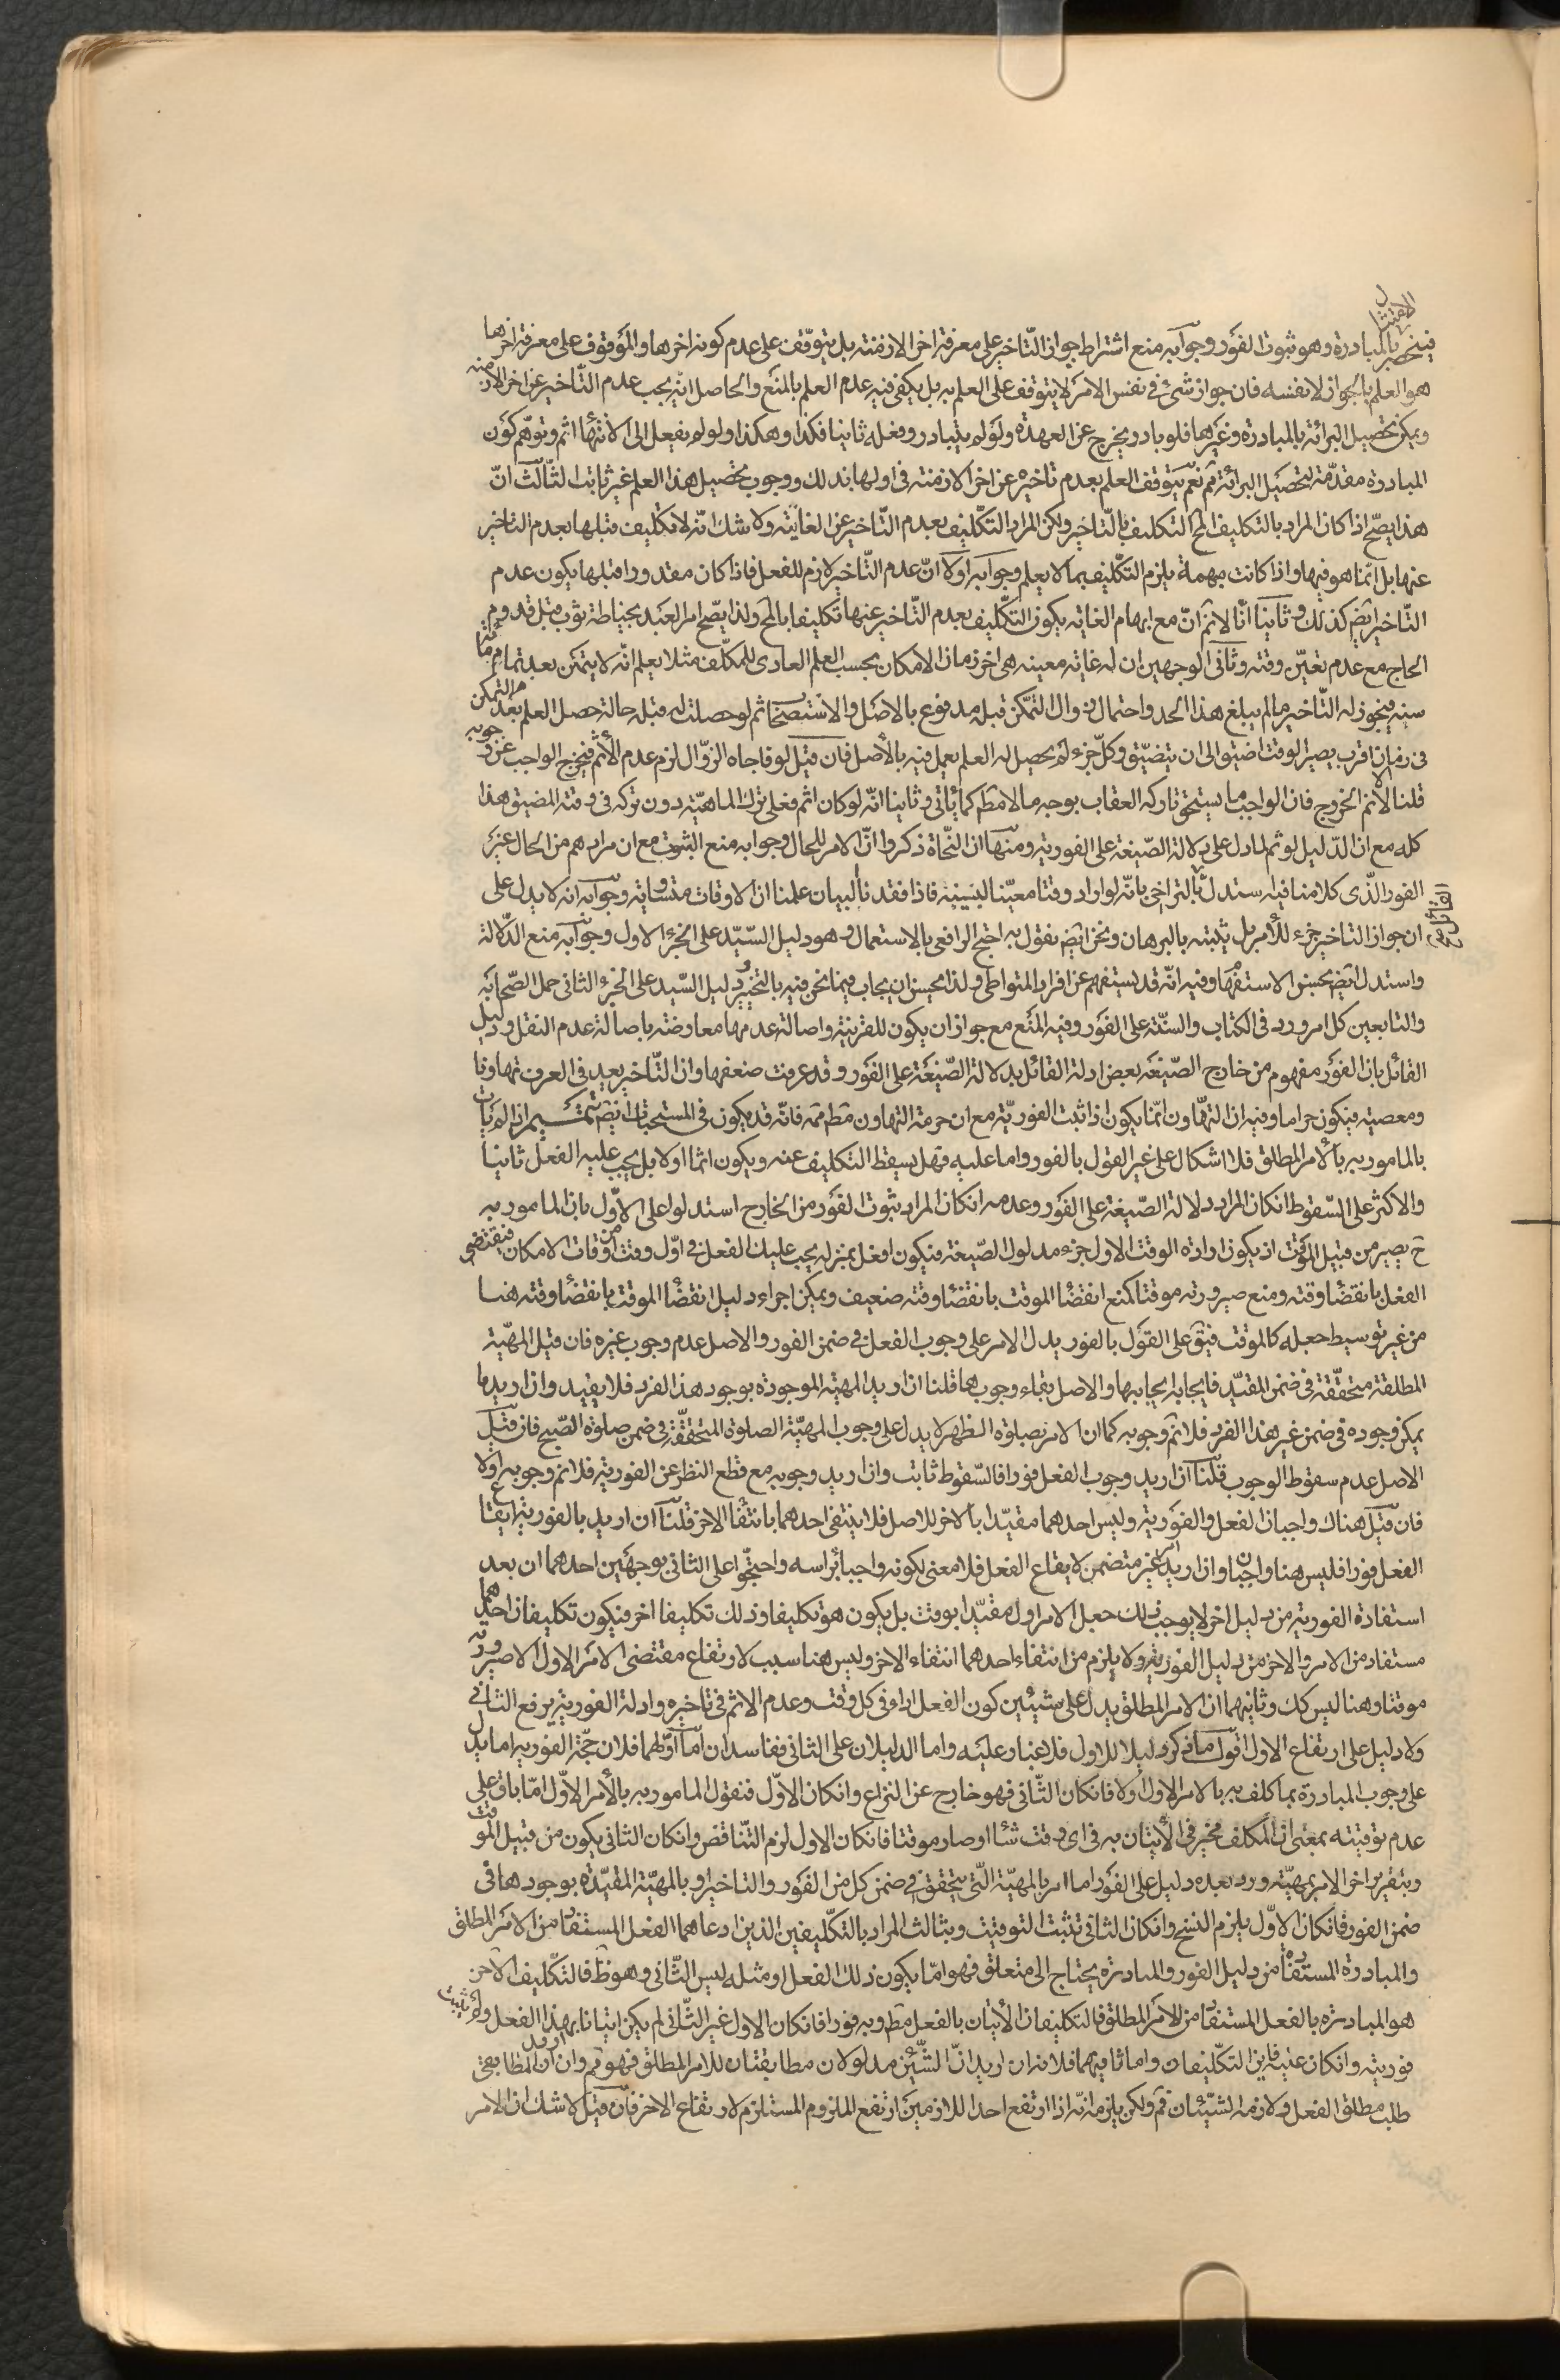 الامتثال
فينحصر بالمبادرة وهو ثبوت الفور وجوابه منع اشتراط جواز التّاخير على معرفة اخر الازمنة بل يتوقّف على عدم كونه اخرها والموقوف على معرفة اخرها
هو العلم بالجواز لا نفسه فان جواز شئ فى نفس الامر لا يتوقف على العلم به بل يكفى فيه عدم العلم بالمنع والحاصل انّه يجب عدم التّاخير عن اخر الازمنة
ويمكن تحصيل البرائة بالمبادرة وغيرها فلو بادر يخرج عن العهدة ولو لم يتبادر وفعله ثانيا فكذا وهكذا ولو لم يفعل الى الانتهاء اثم وتوهّم كون
المبادرة مقدّمة لتحصيل البرائة ثم نعم يتوقف العلم بعدم تاخيره عن اخر الازمنة فى اولها بذلك ووجوب تحصيل هذا العلم غير ثابت الثّالث انّ
هذا يصّح اذا كان المراد بالتكليف المح التكليف بالتّاخير ولكن المراد التكليف بعدم التّاخير عن الغاية ولا شك انّه لا تكليف قبلها بعدم التاخير
عنها بل انّما هو فيها واذا كانت مبهمة يلزم التكليف بما لا يعلم وجوابه اولا انّ عدم التّاخير لازم للفعل فاذا كان مقدورا قبلها يكون عدم
التّاخير ايض كذلك وثانيا انّا لانم انّ مع ابهام الغاية يكون التكليف بعدم التّاخير عنها تكليفا بالمح ولذا يصّح امر العبد بخياطة ثوب قبل قدوم
الحاج مع عدم تعيّن وقته وثانى الوجهين ان له غاية معينه هى اخر زمان الامكان بحسب العلم العادى للمكلّف مثلا يعلم انّه لا يتمكن بعد تمام مأة
سنه فيجوز له التّاخير ما لم يبلغ هذا الحد واحتمال زوال التمكّن قبله مدفوع بالاصل والاستصحاب ثم لو حصلت له قبله حالة حصل العلم بعدم التمكن
فى زمان اقرب يصير الوقت اضيق الى ان يتضيّق وكلّ جزء لم يحصل له العلم يعمل فيه بالأصل فان قيل لو فاجاه الزوّال لزم عدم الأثم فيخرج الواجب عن وجوبه
قلنا لانم الخروج فان الواجب ما يستحق تاركه العقاب بوجه ما لا مط كما يأتى وثانيا انّه لو كان اثم فعلى ترك الماهيّة دون تركه فى وقته المضيق هذا
كله مع ان الدّليل لو تم لما دل على دلالة الصّيغة على الفورية ومنها ان النّحاة ذكروا انّ الامر للحال وجوابه منع الثبوت مع ان مرادهم من الحال غير
الفور الذّى كلامنا فيه استدل القائل بالتراخى بانّه لو اراد وقتا معيّنا لبيّنه فاذا فقدنا البيان علمنا ان الاوقات متساوية وجوابه انه لا يدل على
ان جواز التاخير جزء للأمر بل يثبته بالبرهان ونحن ايض نقول به احتج الرافعى بالاستعمال وهو دليل السّيّد على الجزء الاول وجوابه منع الدّلالة
واستدل ايض بحسن الاستفهام وفيه انّه قد يستفهم عن افراد المتواطى ولذا يحسن ان يجاب فيما نحن فيه بالتخيير ودليل السّيد على الجزء الثانى حمل الصّحابة
والتابعين كل امر ورد فى الكتاب والسنّة على الفور وفيه المنع مع جواز ان يكون للقرينة واصالة عدمها معارضة باصالة عدم النقل ودليل
القائل بان الفور مفهوم من خارج الصّيغة بعض ادلة القائل بدلالة الصّيغة على الفور وقد عرفت ضعفها وان التّاخير يعد فى العرف تهاونا
ومعصية فيكون حراما وفيه ان التهّاون انّما يكون اذا ثبت الفوريّة مع ان حرمة التهاون مط ممه فانّه قد يكون فى المستحبات ايض تتمّيم اذا لم يات
بالمامور به بالأمر المطلق فلا اشكال على غير القول بالفور واما عليه فهل يسقط التكليف عنه ويكون اثما اولا بل يجب عليه الفعل ثانيا
والاكثر على السّقوط انكان المراد دلالة الصّيغة على الفور وعدمه انكان المراد ثبوت الفور من الخارج استدلوا على الاوّل بان المامور به
ح يصير من قبيل الموقّت اذ يكون ارادة الوقت الاول جزء مدلول الصّيغة فيكون افعل بمنزله يجب عليك الفعل فى اوّل وقت من اوقات الامكان فينقضى
الفعل بانقضاء وقته ومنع صيرورته موقتا كمنع انقضاء الموقت بانقضاء وقته ضعيف ويمكن اجراء دليل انقضاء الموقت بانقضاء وقته هنا
من غير توسيط جعله كالموقت فيق على القول بالفور يدل الامر على وجوب الفعل فى ضمن الفور والاصل عدم وجوب غيره فان قيل المهيّة
المطلقة متحقّقة فى ضمن المقيّد فايجابه ايجابها والاصل بقاء وجوبها قلنا ان اريد المهية الموجودة بوجود هذا الفرد فلا يفيد وان اريد ما
يمكن وجوده فى ضمن غير هذا الفرد فلانم وجوبه كما ان الامر بصلوة الظهر لا يدل على وجوب المهيّة الصلوة المتحققّة فى ضمن صلوة الصّبح فان قيل
الاصل عدم سقوط الوجوب قلنا ان اريد وجوب الفعل فورا فالسّقوط ثابت وان اريد وجوبه مع قطع النظر عن الفورية فلانم وجوبه اولا
فان قيل هناك واجبان الفعل والفورية وليس احدهما مقيّدا بالاخر للاصل فلا ينتفى احدهما بانتفاء الاخر قلنا ان اريد بالفورية ايقاع
الفعل فورا فليس هنا واجبان وان اريد امر غير متضمن لايقاع الفعل فلا معنى لكونه واجبا براسه واحتجّوا على الثانى بوجهين احدهما ان بعد
استفادة الفورية من دليل اخر لا يوجب ذلك جعل الامر اول مقيّدا بوقت بل يكون هو تكليفا وذلك تكليفا اخر فيكون تكليفان احدهما
مستفاد من الامر والاخر من دليل الفورية ولا يلزم من انتفاء احدهما انتفاء الاخر وليس هنا سبب لارتفاع مقتضى الامر الاول الا صيرورته
موقتا وهنا ليس كك وثانيهما ان الامر المطلق يدل على شيئين كون الفعل اداء فى كل وقت وعدم الاثم فى تاخيره وادلة الفورية يرفع الثانى
ولا دليل على ارتفاع الاول اقول ما ذكر دليلا للاول فلا غبار عليه واما الدليلان على الثانى ففاسدان امّا اوّلهما فلان حجّة الفورية اما يدل
على وجوب المبادرة بما كلف به بالامر الاول اولا فانكان الثّانى فهو خارج عن النزاع وانكان الاوّل فنقول المامور به بالأمر الاوّل امّا باق على
عدم توقيته بمعنى ان المكلف مخير فى الأتيان به فى اى وقت شاء او صار موقتا فانكان الاول لزم التّناقض وانكان الثانى يكون من قبيل الموقت
وبتقرير اخر الامر بمهيّة ورد بعده دليل على الفور اما امر بالمهيّة التّى يتحقق فى ضمن كل من الفور والتاخير او بالمهيّة المقيّدة بوجودها فى
ضمن الفور فانكان الاوّل يلزم النسخ وانكان الثانى تثبت التوقيت وبثالث المراد بالتكّليفين الذين ادعاهما الفعل المستفاد من الامر المطلق
والمبادرة المستفادة من دليل الفور والمبادرة يحتاج الى متعلق فهو امّا يكون ذلك الفعل او مثله ليس الثّانى وهو ظ فالتكليف الاخر
هو المبادرة بالفعل المستفاد من الامر المطلق فالتكليفان الأتيان بالفعل مط وبه فورا فانكان الاول غير الثّانى لم يكن اتيانا بهذا الفعل ولم يثبت
فورية وانكان عينه فاين التكّليفان واما ثانيهما فلانه ان اريد انّ الشّيئين مدلولان مطابقتان للامر المطلق فهو ثم وان اريد ان المطابقى
طلب مطلق الفعل ولازمه الشيّئان ثم ولكن يلزم انّه اذا ارتفع احد اللازمين ارتفع الملزوم المستلزم لارتفاع الاخر فان قيل لا شك ان الامر